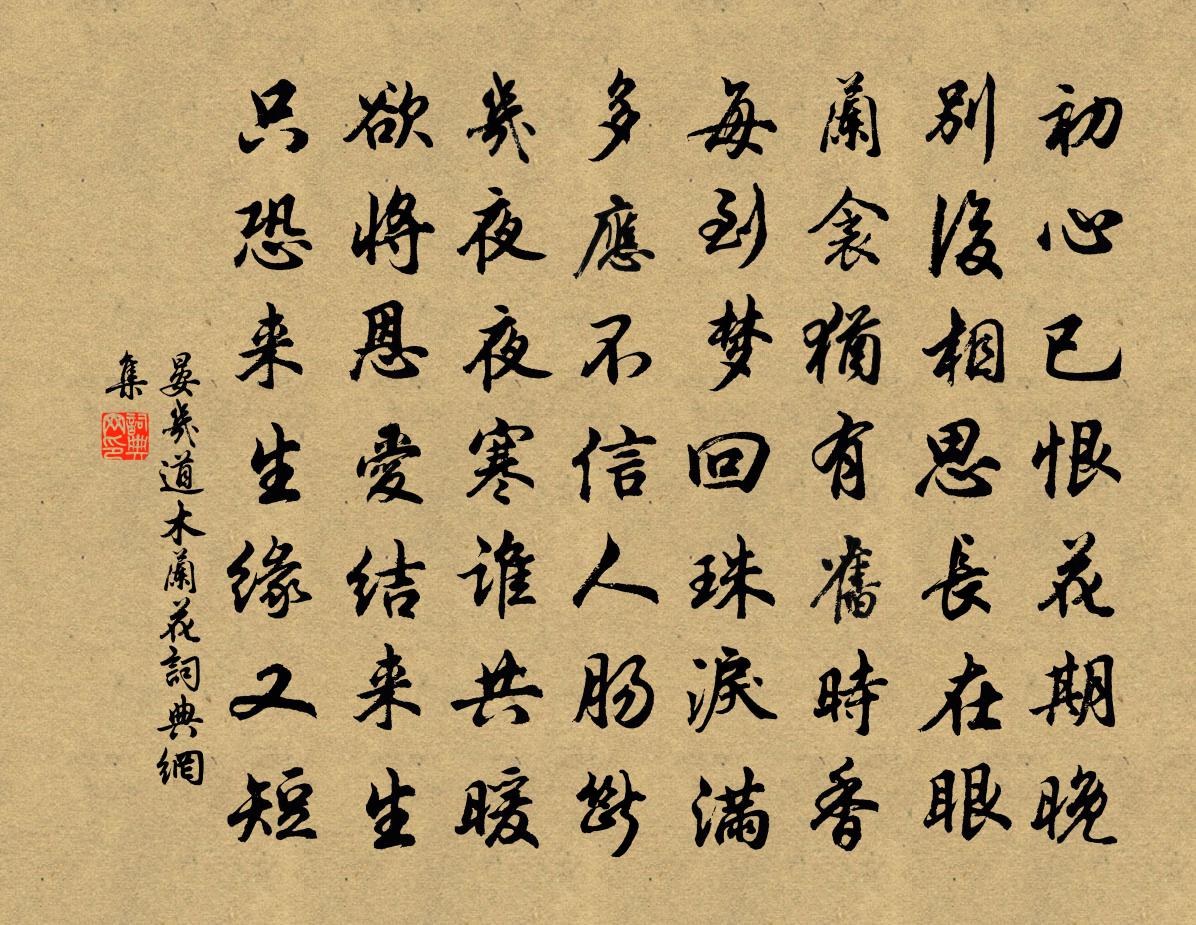 初心已恨花期晚
別後相思長在眼
蘭衾猶有舊時香
每到梦回珠淚滿
多應不信人肠斷
幾夜夜寒誰共暖
欲将恩愛结来生
只恐来生缘又短
晏幾道木蘭花詞典網
集
詞典
网印